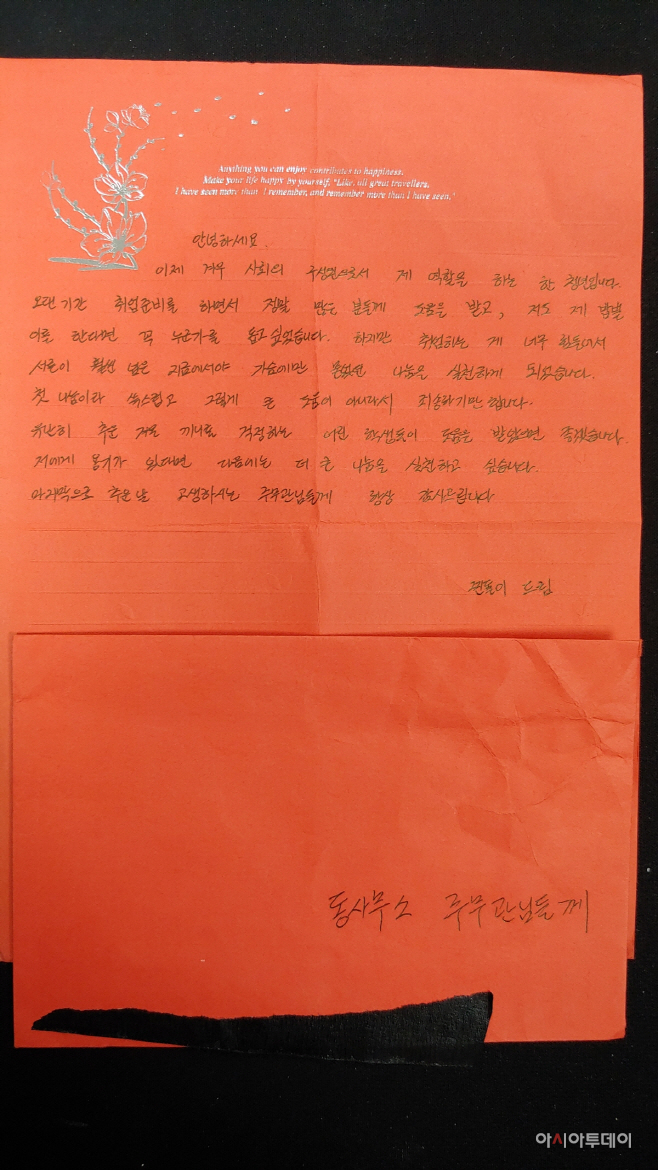 Anything you can enjoy contributes to happiness.
Make your life happy by yourself. "Like, all great travellers,
I have seen more than I remember, and remember more than I have seen."
안녕하세요.
이제 겨우 사회의 구성원으로서 제 역할을 하는 한 청년입니다.
오랜기간 취업준비를 하면서 정말 많은 분들께 도움을 받고, 저도 제 밥벌
이를 한다면 꼭 누군가를 돕고싶었습니다. 하지만 취업하는 게 너무 힘들어서
서른이 훨씬 넘은 지금에서야 가슴에만 품었던 나눔을 실천하게 되었습니다.
첫 나눔이라 쑥스럽고 그렇게 큰 도움이 아니라서 죄송하기만 합니다.
유난히 추운 겨울 끼니를 걱정하는 어린 학생들이 도움을 받았으면 좋겠습니다.
저에게 용기가 있다면 다음에는 더 큰 나눔을 실천하고 싶습니다.
마지막으로 추운날 고생하시는 주무관님들께 항상 감사드립니다
드림
동사무소 주무관님들께
아시아투데이